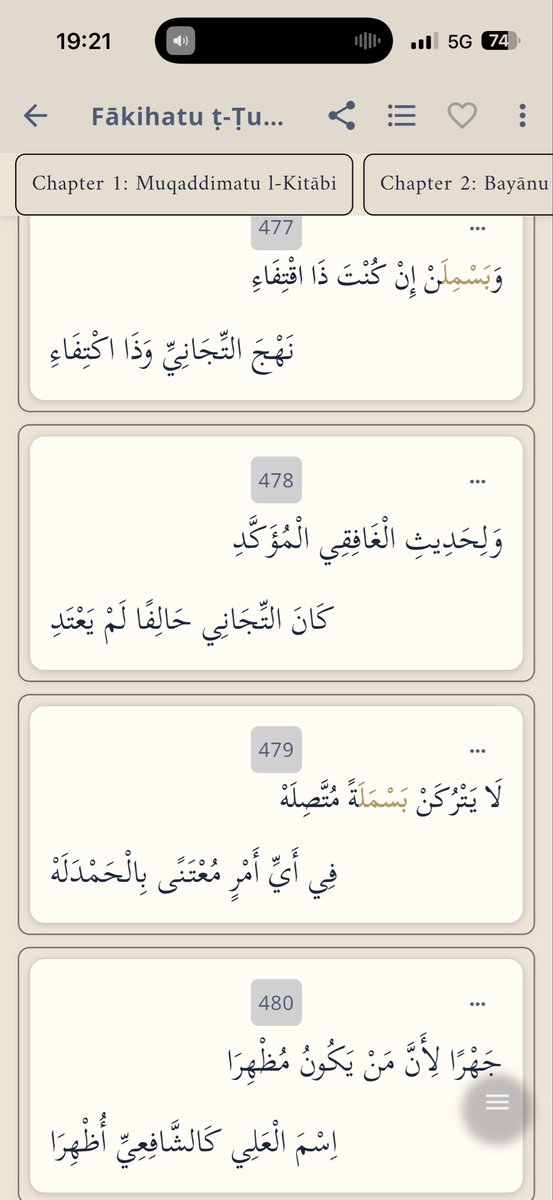 19:21
5G 74
Fākihatu ṭ-Ṭu...
Chapter 1: Muqaddimatu l-Kitābi
Chapter 2: Bayānu
477
وَبَسْمِلَنْ إِنْ كُنْتَ ذَا اقْتِفَاءِ
نَهْجَ التِّجَانِيِّ وَذَا اكْتِفَاءِ
478
وَلِحَدِيثِ الْغَافِقِي الْمُؤَكَّدِ
كَانَ التِّجَانِي حَالِفًا لَمْ يَعْتَدِ
479
لَا يَتْرُكَنْ بَسْمَلَةً مُتَّصِلَهْ
فِي أَيِّ أَمْرٍ مُعْتَنًى بِالْحَمْدَلَهْ
480
جَهْرًا لِأَنَّ مَنْ يَكُونُ مُظْهِرَا
اِسْمَ الْعَلِي كَالشَّافِعِيِّ أُظْهِرَا